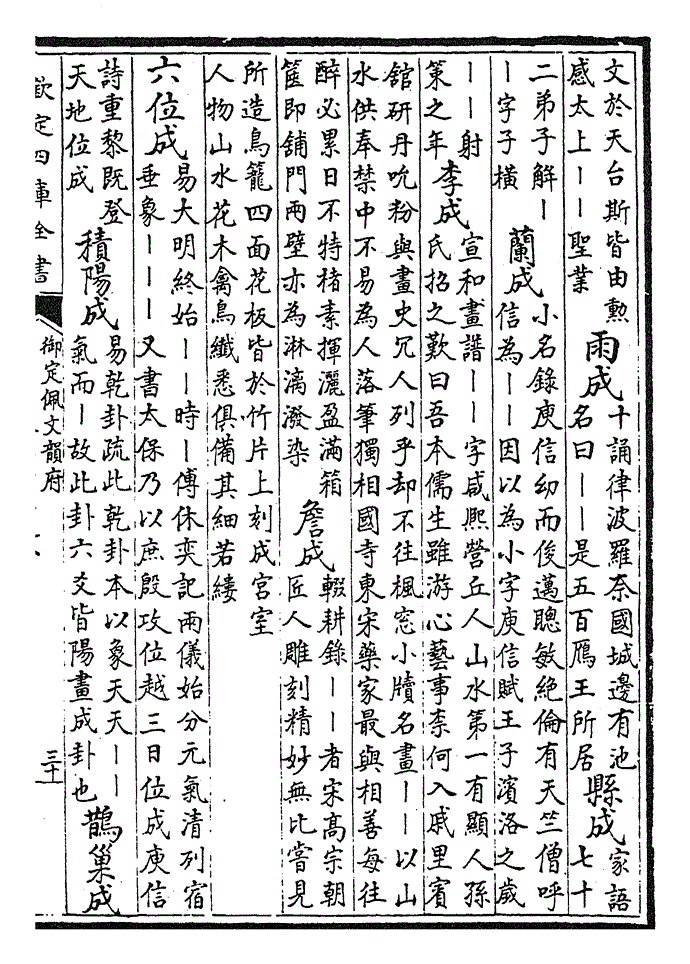 文於天台斯皆由勲
感太上――聖業
雨成
十誦律波羅奈國城邊有池
名曰――是五百鴈王所居
縣成
家語
七十
二弟子解―
―字子橫
蘭成
小名錄庾信幼而俊邁聰敏絶倫有天竺僧呼
信為――因以為小字庾信賦王子濱洛之歲
――射
策之年
李成
宣和畫譜――字咸熙營丘人山水第一有顯人孫
氏招之歎曰吾本儒生雖游心藝事柰何入戚里賓
舘研丹吮粉與畫史冗人列乎却不往楓窓小牘名畫――以山
水供奉禁中不易為人落筆獨相國寺東宋藥家最與相善每往
醉必累日不特楮素揮灑盈滿箱
篋即舖門兩壁亦為淋漓潑染
詹成
輟耕錄――者宋髙宗朝
匠人雕刻精妙無比嘗見
所造鳥籠四面花板皆於竹片上刻成宮室
人物山水花木禽鳥纖悉俱備其細若縷
六位成
易大明終始――時―傅休奕記兩儀始分元氣清列宿
垂象―――又書太保乃以庶殷攻位越三日位成庾信
詩重黎既登
天地位成
積陽成
易乾卦疏此乾卦本以象天天――
氣而―故此卦六爻皆陽畫成卦也
鵲巢成
欽定四庫全書
御定佩文韻府
三十